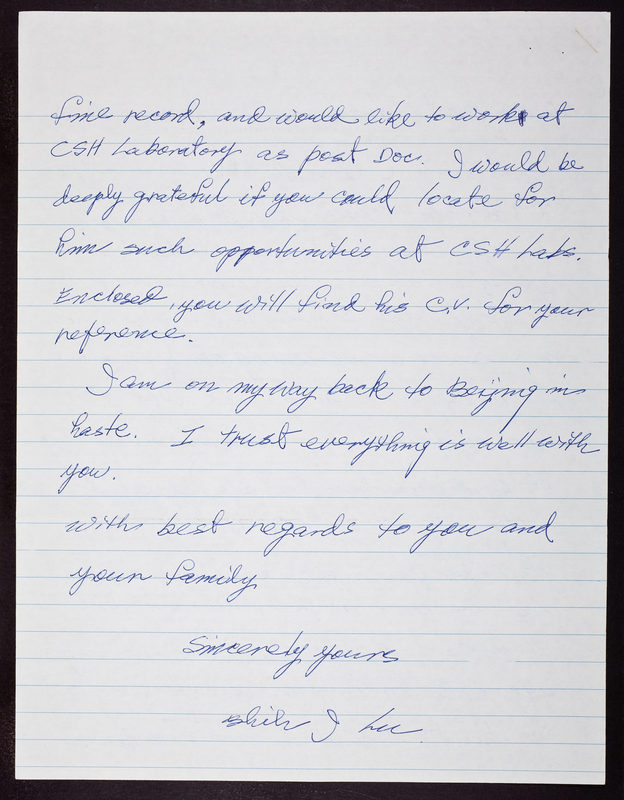 fine record, and would like to work at
CSH Laboratory as post Doc. I would be
deeply grateful if you could locate for
him such opportunities at CSH Labs.
Enclosed, you will find his C.V. for your
reference.
I am on my way back to Beijing in
haste. I trust everything is well with
you.
with best regards to you and
your family
Sincerely yours
Shih I Lu